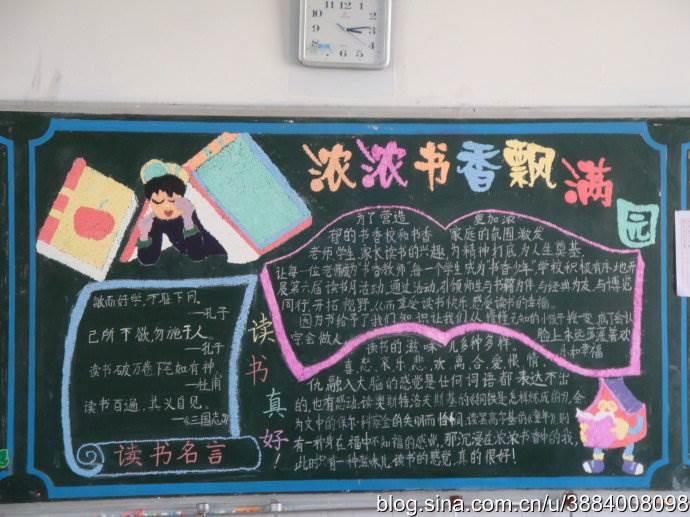 浓浓书香飘满园
敏而好学,不耻下问。
——孔子
己所不欲,勿施于人。
——孔子
读书破万卷下笔如有神。
——杜甫
读书百遍,其义自见。
——《三国志》
读书名言
读书真好!
为了营造 更加浓
郁的书香校和书香 家庭的氛围激发
老师学生,家长读书的兴趣,为精神打底,为人生奠基。
让每一位老师成为书香教师,每一个学生成为书香少年,学校积极有序地开
展第六届读书月活动,通过活动,引领师生与书籍为伴,与经典为友,与博览
同行,开拓视野,从而享受读书快乐,感受读书的幸福。
因为书给予了我们知识让我们从
字会做人, 脸上永远荡漾着欢
读书的滋味,儿多种多样 和幸福
喜、悲、哀、乐、悲、欢、离、合、爱、恨、情、
仇,融入大脑的感觉是任何词语都表达不出
的,也有感动,读奥斯特洛夫斯基的《钢铁是怎样炼成的》,会
为文中的保尔·柯察金的失明而
有一种身在福中不知福的感觉,那沉浸在浓浓书香中的我,
此时只有一种滋味儿,读书的感觉,真的很好!
blog.sina.com.cn/u/3884008098